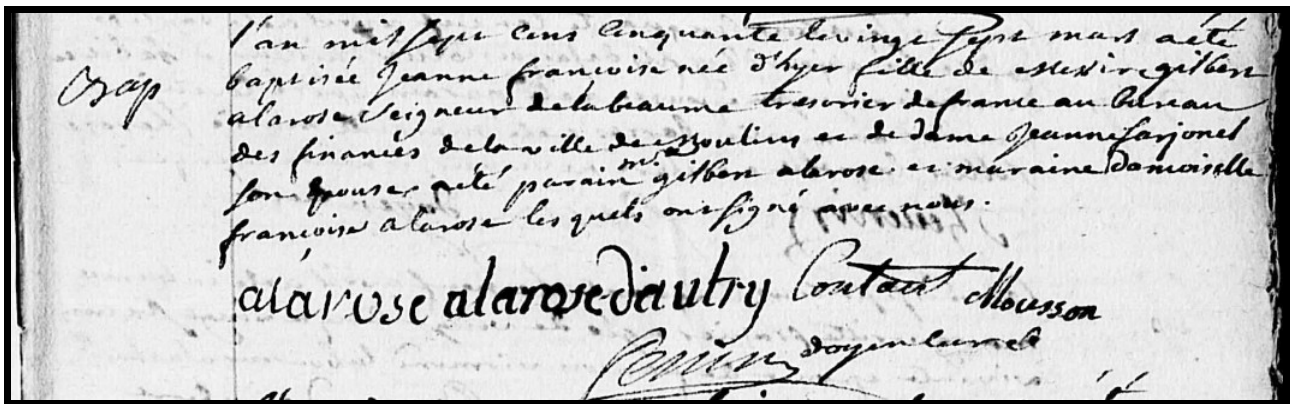 l'an mil sept cens cinquante le vingt sept mars a été
Bap
baptisée jeanne françoise née d'hyer fille de messire gilbert
alarose seigneur de la beaume tresorier de france au bureau
des finances de la ville de Moulins et de dame jeanne farjonel
son epouse, a été parain mr gilbert alarose. et maraine damoiselle
françoise alarose les quels ont signé avec nous.
alarose alarose d'autry Contant Mousson
doyen curé